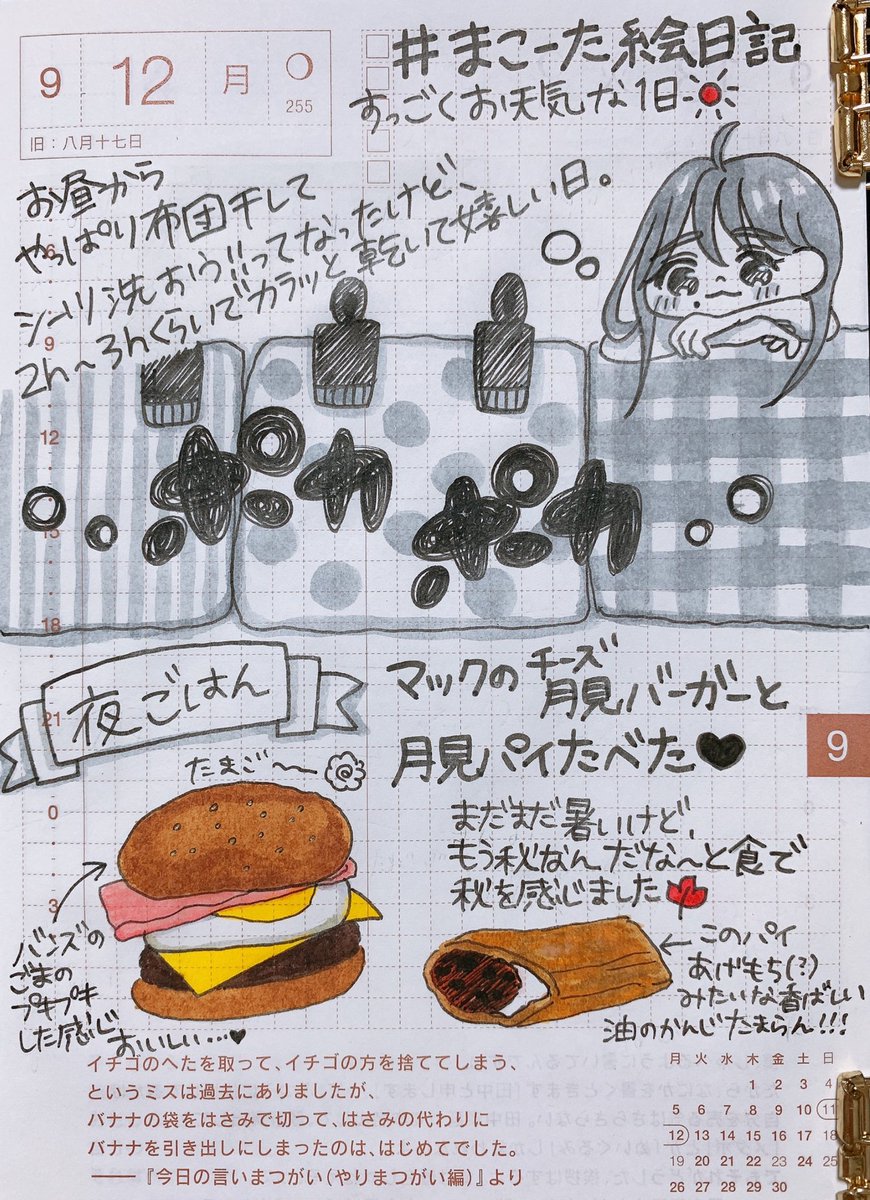 9 12 月
255
旧：八月十七日
#まこーた絵日記
すっごくお天気な1日
お昼から
やっぱり布団干して
シーツ洗おう!!ってなったけど、
2h〜3hくらいでカラッと乾いて嬉しい日。
6
9
12
15
18
21
0
3
ポカポカ
夜ごはん
マックのチーズ月見バーガーと
月見パイたべた♥
たまご〜
まだまだ暑いけど、
もう秋なんだな〜と食で
秋を感じました
バンズの
ごまの
プキプキ
した感じ
おいしい…♥
←このパイ
あげもち(?)
みたいな香ばしい
油のかんじたまらん!!!
9
イチゴのへたを取って、イチゴの方を捨ててしまう、
というミスは過去にありましたが、
バナナの袋をはさみで切って、はさみの代わりに
バナナを引き出しにしまったのは、はじめてでした。
――『今日の言いまつがい（やりまつがい編）』より
月 火 水 木 金 土 日
1 2 3 4
5 6 7 8 9 10 11
12 13 14 15 16 17 18
19 20 21 22 23 24 25
26 27 28 29 30